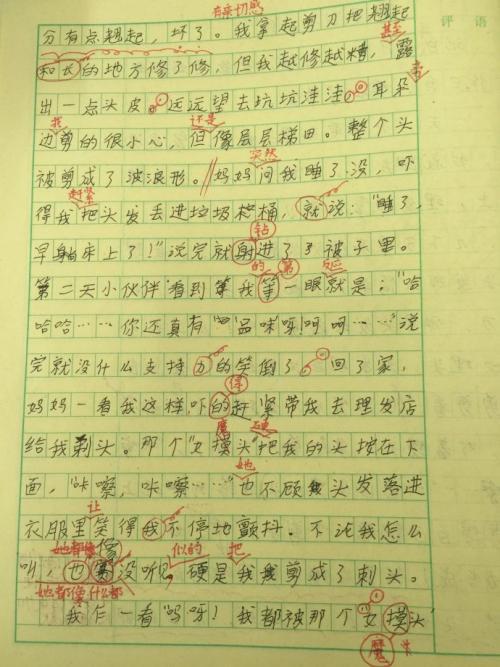 评语
有亲切感
分有点翘起，坏了。我拿起剪刀把翘起
甚至
和长的地方修了修，但我越修越糟，露
出一点头皮。远远望去坑坑洼洼。耳朵
我 还是
边剪的很小心，但像层层梯田。整个头
突然
被剪成了波浪形。妈妈问我睡了没，吓
赶紧
得我把头发丢进垃圾桶，就说："睡了，
钻
早躺床上了！"说完就射进了被子里。
的 第
第二天小伙伴看到我笋一眼就是："哈
哈哈……你还真有品味呀！呵呵……"说
完就没什么支持力的笑倒了。回了家，
得
妈妈一看我这样，吓的赶紧带我去理发店
魔
给我剃头。那个"女摸头"把我的头按在下
她
面，"咔嚓，咔嚓……"也不顾头发落进
让
衣服里笑得我不停地颤抖。不论我怎么
她都像 似的 把
叫，也像没听见，硬是我剪成了刺头。
她都像什么都
我乍一看"呜呀！我都被那个"女摸头
魔头